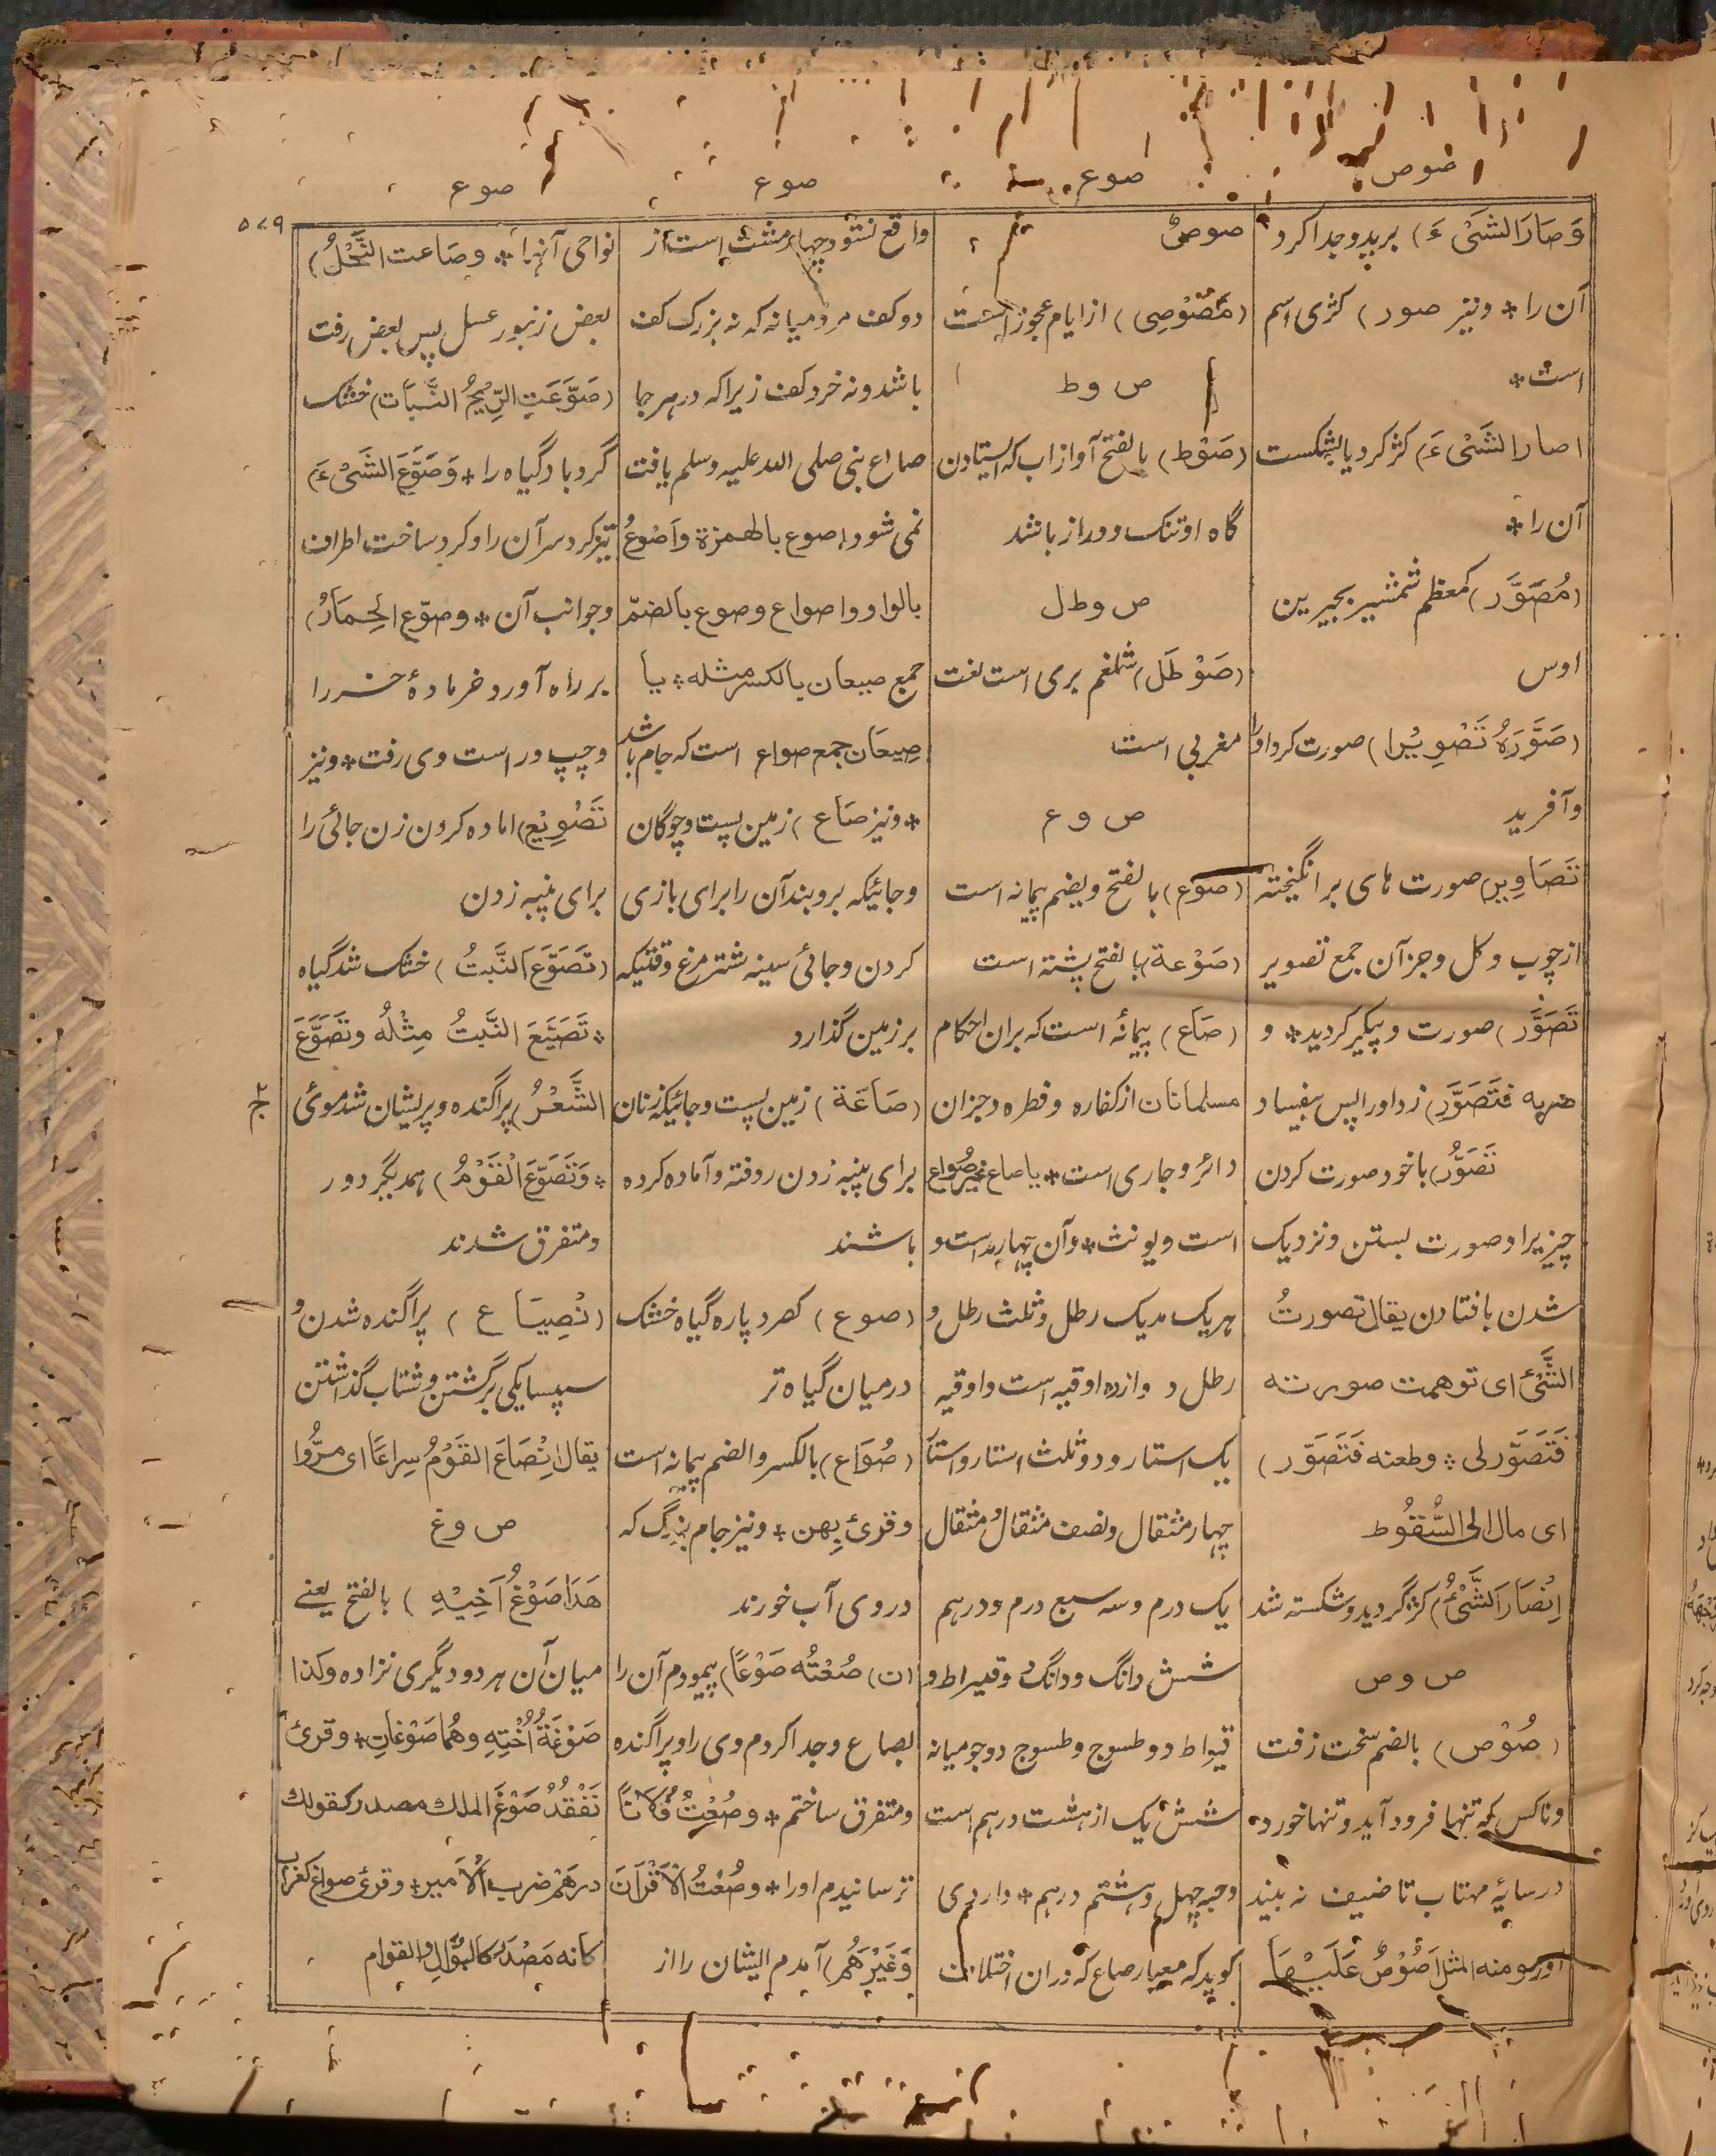 صوص
صوع
صوع
صوع
۵۷۹
وَصَارَ الشَیْءَ) برید و جدا کرد
آن را * و نیز صور) کژی اسم
است *
اصار الشَیْءَ) کژ کرد یا بشکست
آن را *
(مُصَوَّر) کمعظم شمشیر بجیر بن
اوس
(صَوَّرَهُ تَصْوِیْرا) صورت کرد اورا
و آفرید
تَصَاوِیر) صورت های برانگیخته
از چوب و گل و جز آن جمع تصویر
تَصَوَّر) صورت و پیکر کردید * و
ضربه فتَصَوَّر) زد اورا پس بیفیاد
تَصَوُّر) با خود صورت کردن
چیزیرا و صورت بستن و نزدیک
شدن بافتادن یقال تصورتُ
الشَّئ ای توهمت صورته
فَتَصَوَّر لی * و طعنه فَتَصَوَّر)
ای مال الی السُّقُوط
اِنْصَارَ الشَّیْءُ) کژ گردید و شکسته شد
ص و ص
(صُوْص) بالضم سخت زفت
و ناکس که تنها فرود آید و تنها خورد
در سایهٔ مهتاب تا ضیف نه بیند
اورا و منه المثل اَصُوْصٌ عَلَیْهَا
صوصٌ
(مَصُوْصِی) از ایام عجوز است
ص و ط
(صَوْط) بالفتح آواز اب که ایستادن
گاه او تنک و دراز باشد
ص و ط ل
(صَوْطَل) شلغم بری است لغت
مغربی است
ص و ع
(صَوع) بالفتح و بضم پیمانه است
(صَوْعة) بالفتح پشته است
(صَاع) پیمانهٔ است که بران احکام
مسلمانان از کفاره و فطره و جزان
دائر و جاری است * یا صاع غیر صُواع
است و یونث * و آن چهار مد است و
هر یک مد یک رطل و ثلث رطل و
رطل دوازده اوقیه است و اوقیه
یک استار و دو ثلث استار و استا
چهار مثقال و نصف مثقال و مثقال
یک درم و سه سبع درم و درهم
شش دانگ و دانگ دو قیراط و
قیراط دو طسوج و طسوج دو جو میانه
شش یک از هشت درهم است
و حبه چهل و هشتم درهم * داردی
کوید که معیار صاع که دران اختلاف
واقع نشود چهار مشت است از
دو کف مرد میانه که نه بزرگ کف
باشد و نه خرد کف زیرا که در هر جا
صاع نبی صلی الله علیه وسلم یافت
نمی شود اصوع بالهمزة واَصْوعُ
بالواو و اصواع و صوع بالضمّ
جمع صیعان بالکسر مثله * یا
صِیعَان جمع صواع است که جام باشد
* و نیز صَاع) زمین پست و چوگان
و جائیکه بروبند آن را برای بازی
کردن و جائی سینه شتر مرغ وقتیکه
بر زمین گذارد
(صَاعَة) زمین پست و جائیکه زنان
برای پنبه زدن روفته و آماده کرده
باشند
(صوع) کصرد پاره گیاه خشک
درمیان گیاه تر
(صُوَاع) بالکسر و الضم پیمانه است
و قرئ بِهن * و نیز جام بزرگ که
دروی آب خورند
(ن) صُعْتُه صَوْعًا) پیمودم آن را
بصاع و جدا کردم وی را و پراگنده
و متفرق ساختم * و صُعْتُ فُلَانًا
ترسانیدم اورا * وصُعْتُ الْاَقْرَانَ
وَغَیْرَهُم) آمدم ایشان را از
نواحی آنها * وصَاعت النَّحْلُ)
بعض زنبور عسل پس بعض رفت
(صَوَّعَتِ الرِّیْحُ النَّبَات) خشک
گرد باد گیاه را * وَصَوَّعَ الشَّیْءَ)
تیز کرد سر آن را و گرد ساخت اطراف
و جوانب آن * وصوّع الحِمَارُ)
بر راه آورد خر مادهٔ خر را
و چپ و راست وی رفت * و نیز
تَصْوِیْع) اماده کردن زن جائی را
برای پنبه زدن
(تَصَوَّعَ النَّبتُ) خشک شد گیاه
* تَصَیَّعَ النَّبتُ مِثْلُه وتَصَوَّعَ
الشَّعْرُ) پراگنده و پریشان شد موئ
* وَتَصَوَّعَ الْقَوْمُ) همدیگر دور
و متفرق شدند
(نْصِیَاع) پراگنده شدن و
سپسایکی برگشتن و شتاب گذاشتن
یقال اِنْصَاعَ القَوْمُ سِراعًا ای مرُّوا
ص و غ
هَذَا صَوْغُ اَخِیْهِ) بالفتح یعنے
میان آن هر دو دیگری نزاده وکذا
صَوْغَةُ اُخْتِهِ وهُما صَوْغانِ * وقرئ
نَفْقُدُ صَوْغَ الملك مصدر کقولك
درهَم ضرب الاَمیر * وقرئ صواغ کغراب
کانه مَصْدَر کالبُوَّالِ والقوام